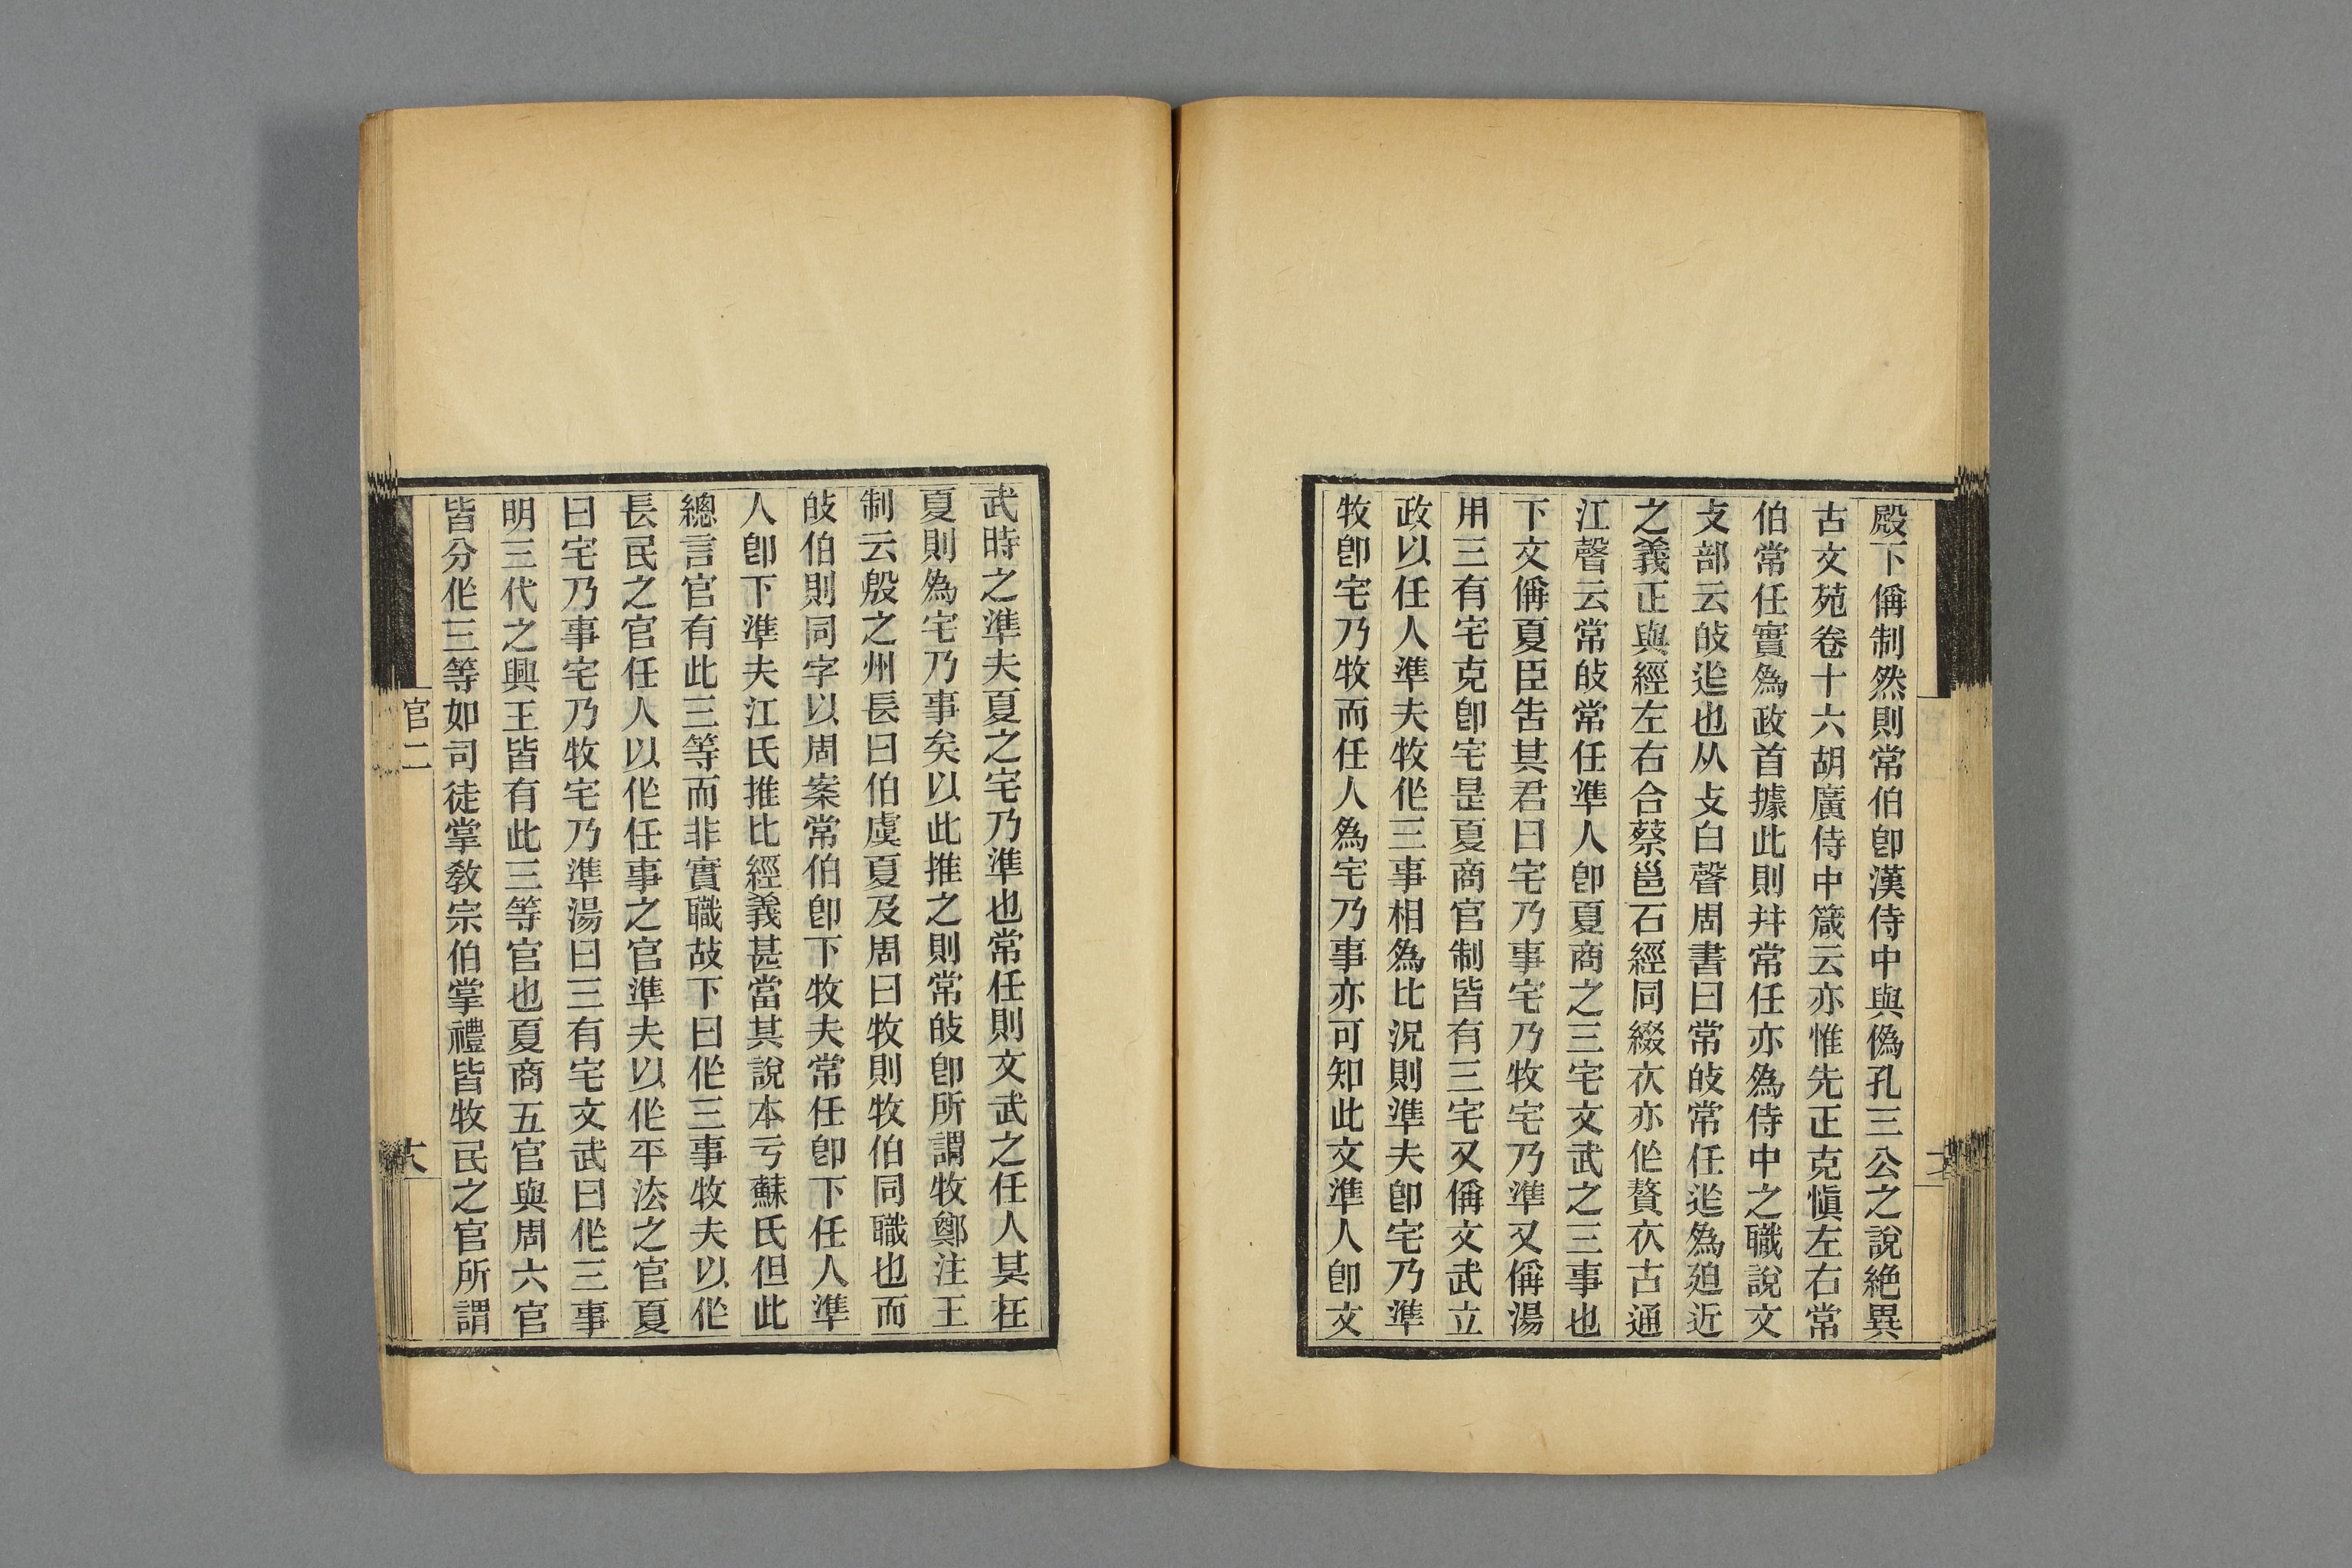 殿下偁制然則常伯卽漢侍中與僞孔三公之說絶異
古文苑卷十六胡廣侍中箴云亦惟先正克愼左右常
伯常任實爲政首據此則幷常任亦爲侍中之職說文
攴部云敀迮也从攴白聲周書曰常敀常任迮爲廹近
之義正與經左右合蔡邕石經同綴衣亦作贅衣古通
江聲云常敀常任準人卽夏商之三宅文武之三事也
下文偁夏臣吿其君曰宅乃事宅乃牧宅乃準又偁湯
用三有宅克卽宅是夏商官制皆有三宅又偁文武立
政以任人準夫牧作三事相爲比況則準夫卽宅乃準
牧卽宅乃牧而任人爲宅乃事亦可知此文準人卽文
武時之準夫夏之宅乃準也常任則文武之任人其在
夏則爲宅乃事矣以此推之則常敀卽所謂牧鄭注王
制云殷之州長曰伯虞夏及周曰牧則牧伯同職也而
敀伯則同字以周案常伯卽下牧夫常任卽下任人準
人卽下準夫江氏推比經義甚當其說本亏蘇氏但此
總言官有此三等而非實職故下曰作三事牧夫以作
長民之官任人以作任事之官準夫以作平法之官夏
曰宅乃事宅乃牧宅乃準湯曰三有宅文武曰作三事
明三代之興王皆有此三等官也夏商五官與周六官
皆分作三等如司徒掌敎宗伯掌禮皆牧民之官所謂
官二